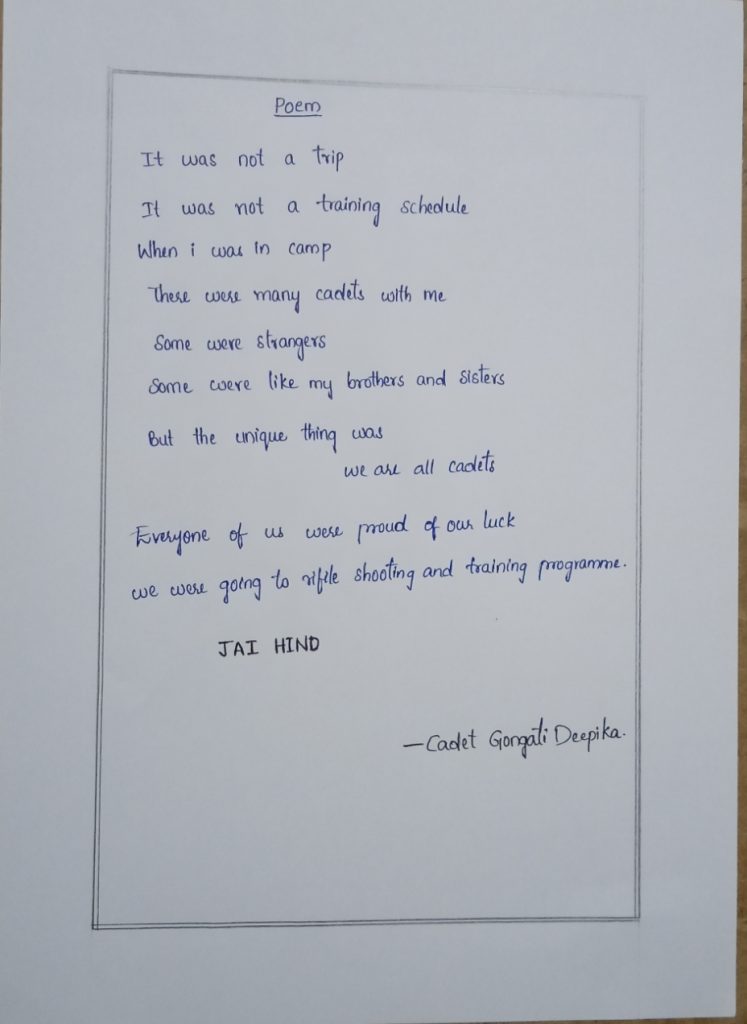 Poem
It was not a trip
It was not a training schedule
When i was in camp
There were many cadets with me
Some were strangers
Some were like my brothers and sisters
But the unique thing was
we are all cadets
Everyone of us were proud of our luck
we were going to rifile shooting and training programme.
JAI HIND
—Cadet Gongati Deepika.